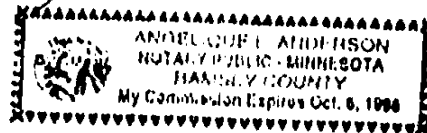 ANGELIQUE L. ANDERSON
NOTARY PUBLIC - MINNESOTA
RAMSEY COUNTY
My Commission Expires Oct. 6, 1998